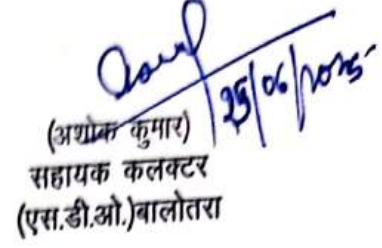 25/06/2025
(अशोक कुमार)
सहायक कलक्टर
(एस.डी.ओ.)बालोतरा